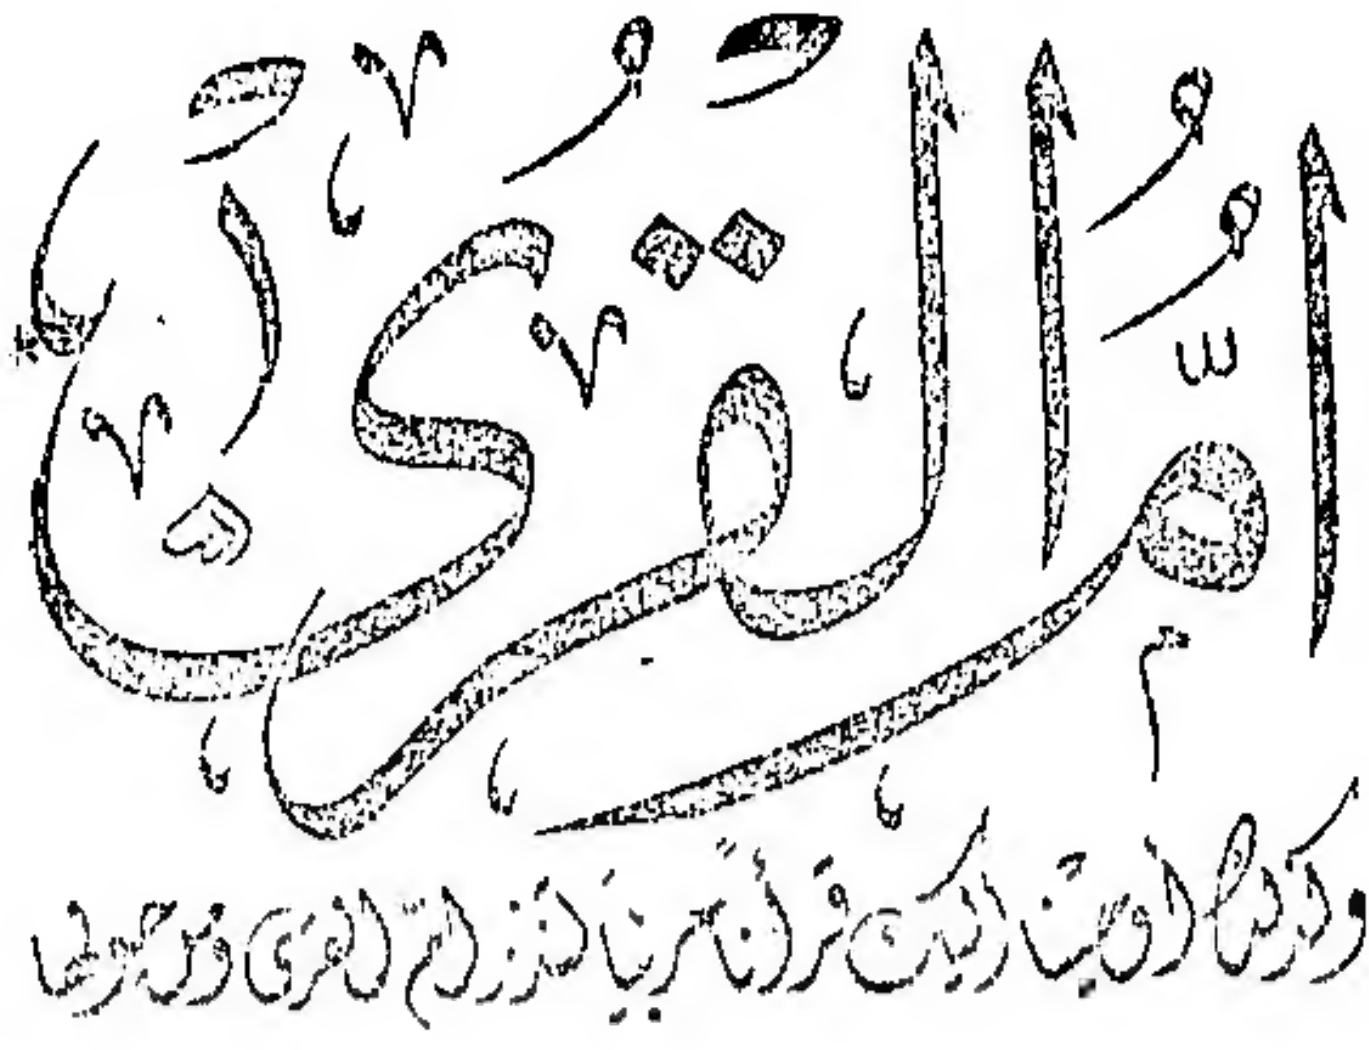 امُّ القُرىٰ
وكذلك أوحينا اليك قرأناً عربياً لتنذر امّ القرى ومن حولها